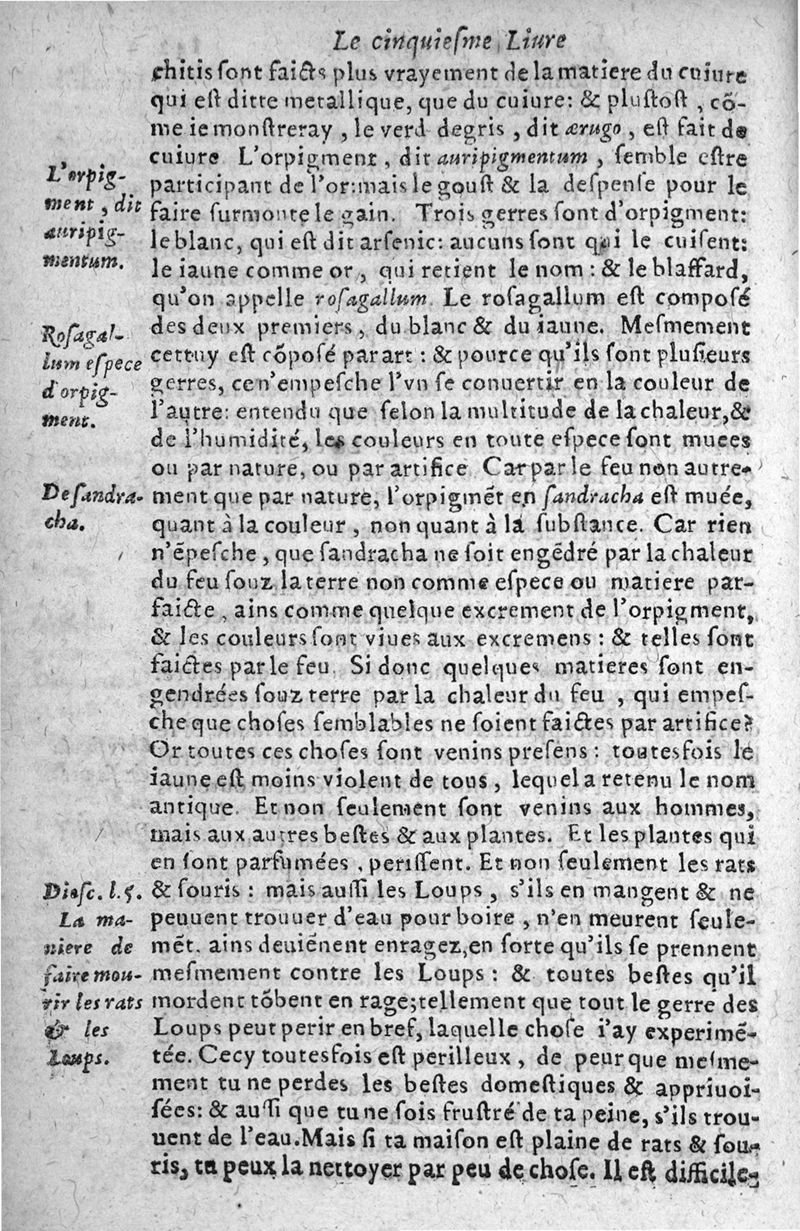 Le cinquieſme Liure
chitis ſont faicts plus vrayement de la matiere du cuiure
qui eſt ditte metallique, que du cuiure: & pluſtoſt, cõ-
me ie monſtreray, le verd degris, dit ærugo, eſt fait de
cuiure. L'orpigment, dit auripigmentum, ſemble eſtre
participant de l'or: mais le gouſt & la deſpenſe pour le
faire ſurmonte le gain. Trois gerres ſont d'orpigment:
le blanc, qui eſt dit arſenic: aucuns ſont qui le cuiſent:
le iaune comme or, qui retient le nom: & le blaffard,
qu'on appelle roſagallum. Le roſagallum eſt compoſé
des deux premiers, du blanc & du iaune. Meſmement
cettuy eſt cõpoſé par art: & pource qu'ils ſont pluſieurs
gerres, ce n'empeſche l'vn ſe conuertir en la couleur de
l'autre: entendu que ſelon la multitude de la chaleur, &
de l'humidité, les couleurs en toute eſpece ſont muees
ou par nature, ou par artifice. Car par le feu non autre-
ment que par nature, l'orpigmẽt en ſandracha eſt muée,
quant à la couleur, non quant à la ſubſtance. Car rien
n'ẽpeſche, que ſandracha ne ſoit engẽdré par la chaleur
du feu ſouz la terre non comme eſpece ou matiere par-
faicte, ains comme quelque excrement de l'orpigment,
& les couleurs ſont viues aux excremens: & telles ſont
faictes par le feu. Si donc quelques matieres ſont en-
gendrées ſouz terre par la chaleur du feu, qui empeſ-
che que choſes ſemblables ne ſoient faictes par artifice?
Or toutes ces choſes ſont venins preſens: toutesfois le
iaune eſt moins violent de tous, lequel a retenu le nom
antique. Et non ſeulement ſont venins aux hommes,
mais aux autres beſtes & aux plantes. Et les plantes qui
en ſont parfumées, periſſent. Et non ſeulement les rats
& ſouris: mais auſſi les Loups, s'ils en mangent & ne
peuuent trouuer d'eau pour boire, n'en meurent ſeule-
mẽt, ains deuiẽnent enragez, en ſorte qu'ils ſe prennent
meſmement contre les Loups: & toutes beſtes qu'il
mordent tõbent en rage; tellement que tout le gerre des
Loups peut perir en bref, laquelle choſe i'ay experimẽ-
tée. Cecy toutesfois eſt perilleux, de peur que meſme-
ment tu ne perdes les beſtes domeſtiques & appriuoi-
ſées: & auſſi que tu ne ſois fruſtré de ta peine, s'ils trou-
uent de l'eau. Mais ſi ta maiſon eſt plaine de rats & ſou-
ris, tu peux la nettoyer par peu de choſe. Il eſt difficile-
L'orpig-
ment, dit
auripig-
mentum.
Roſagal-
lum eſpece
d'orpig-
ment.
De ſandra-
cha.
Dioſc. l. 5.
La ma-
niere de
faire mou-
rir les rats
& les
Loups.